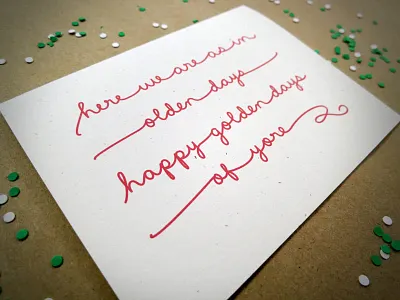 here we are as in
olden days
happy golden days
of yore